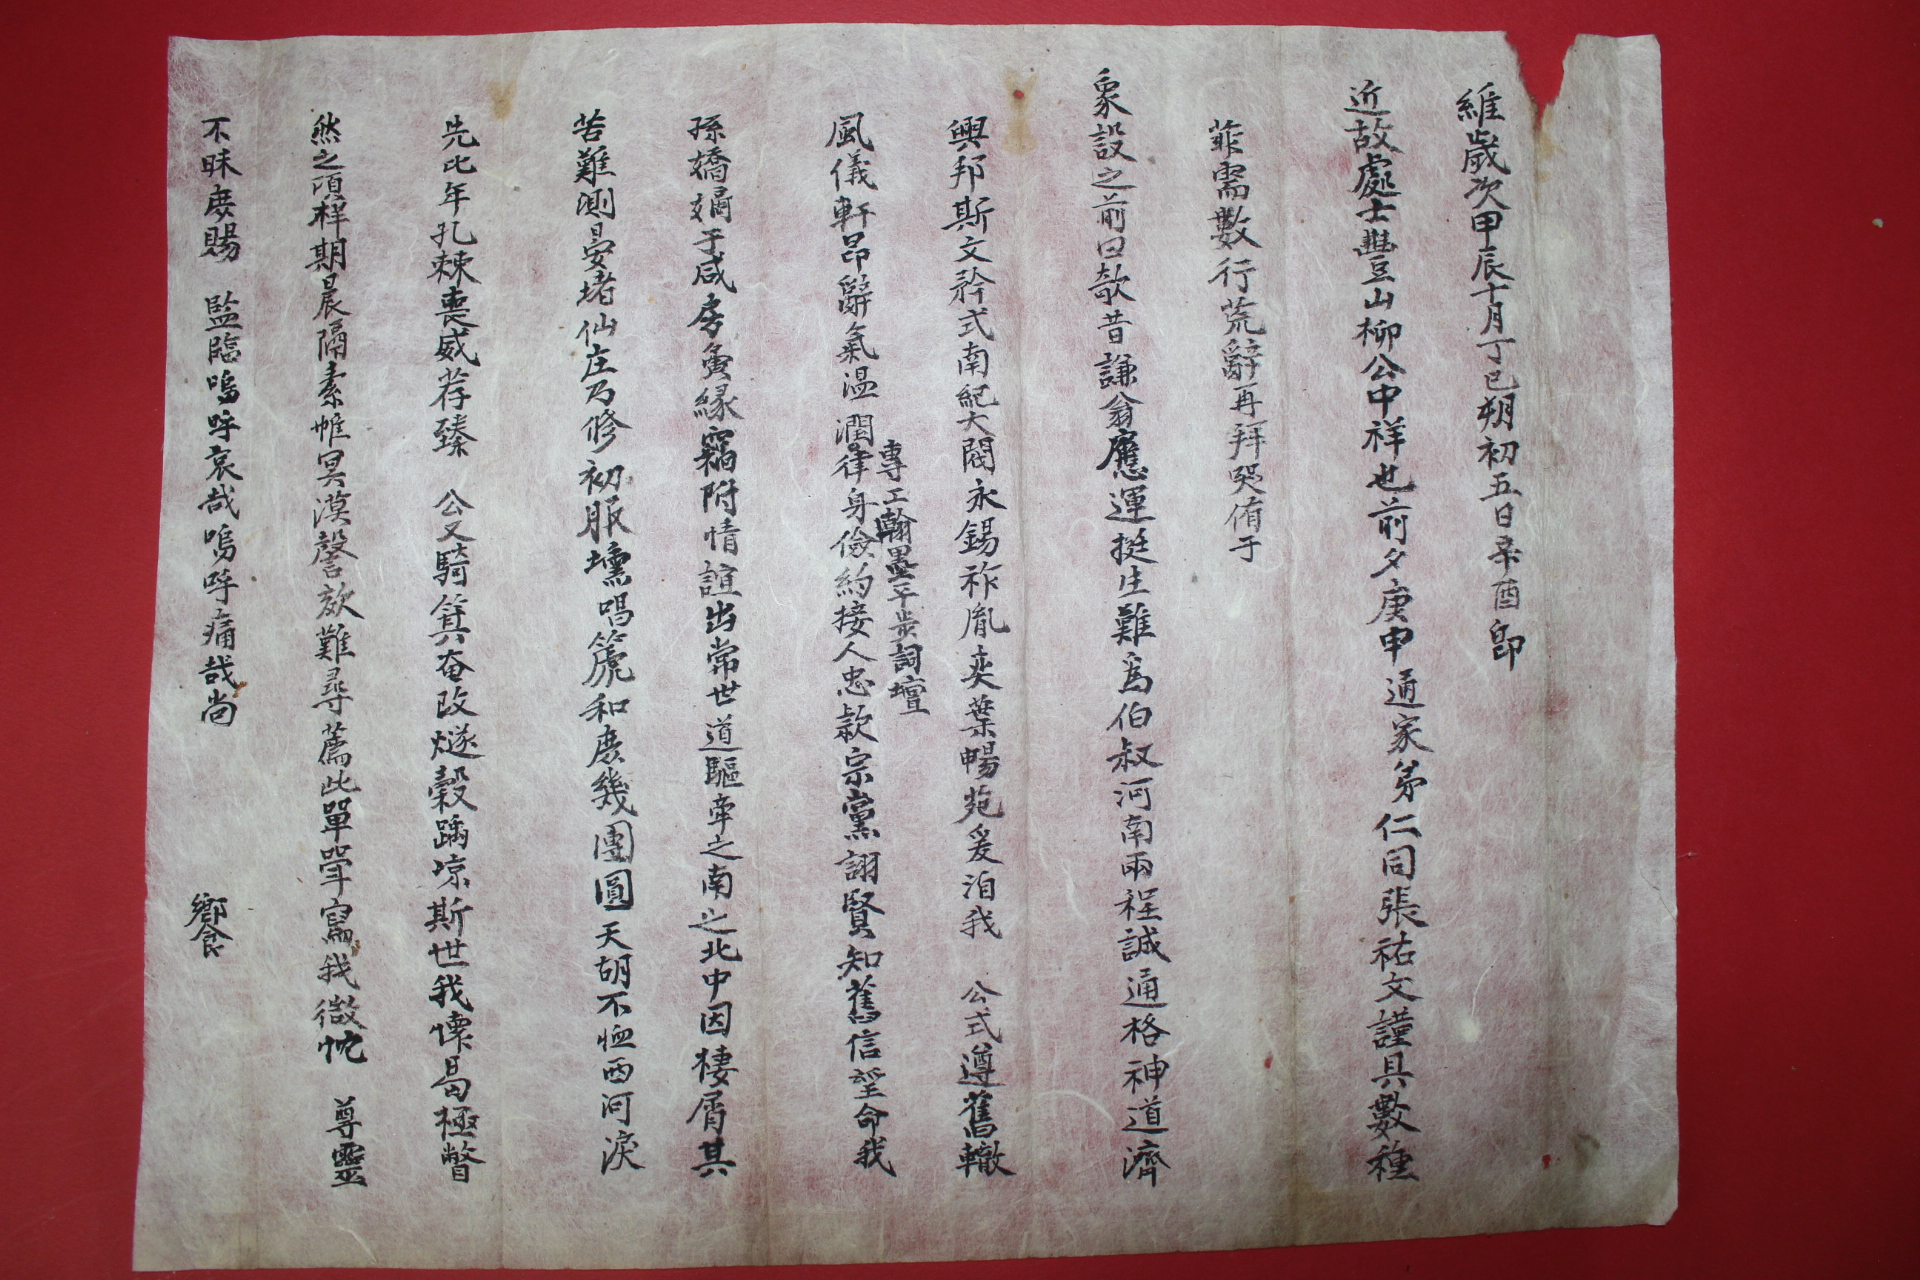 維歲次甲辰十月丁巳朔初五日辛酉 卽
近故處士豊山柳公中祥也前夕庚申 通家弟仁同張祐文謹具數種
菲需數行荒辭再拜哭侑于
象設之前曰欹昔謙翁應運挺生難爲伯叔河南兩程誠通格神道濟
興邦斯文矜式南紀大閥永錫祚胤奕葉暢苑爰洎我 公式遵舊轍
專工翰墨平步詞壇
風儀軒昂辭氣溫潤律身儉約接人忠款宗黨詡賢知舊信望命我
孫嬌嫡于咸房夤緣竊附情誼出常世道驅牽之南之北中因棲屑其
苦難測晏堵仙庄乃修初服壎唱篪和庶幾團圓天胡不恤西河淚
先比年孔棘喪威荐臻 公又騎箕奄改燧穀踽凉斯世我懷曷極瞥
然之頃祥期晨隔素帷冥漠謦欬難尋薦此單斝寫我微忱 尊靈
不昧庶賜 監臨嗚呼哀哉嗚呼痛哉尚
饗